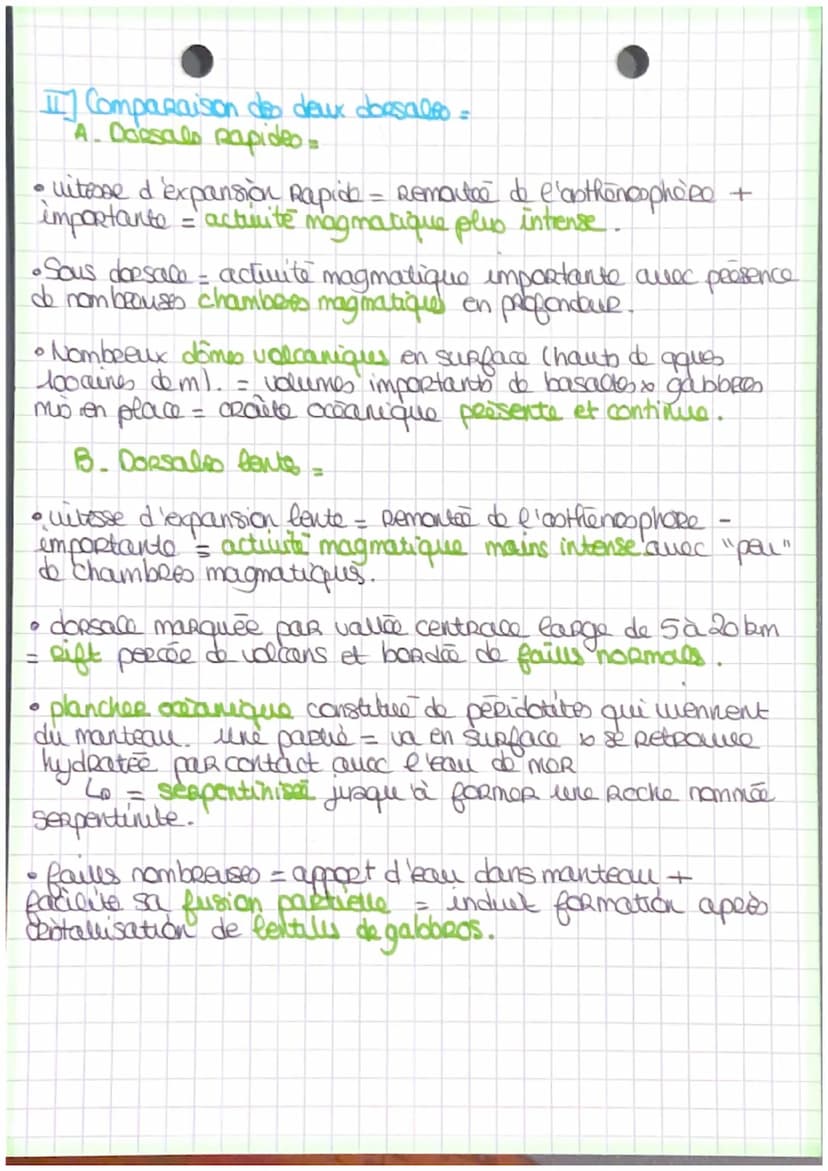 II] Comparaison des deux dorsales =
A - Dorsale rapides =
• vitesse d'expansion Rapide = Remontée de l'asthénosphère +
importante = activité magmatique plus intense.
• Sous dorsale = activité magmatique importante avec présence
de nombreuses chambres magmatiques en profondeur.
• Nombreux dômes volcaniques en surface (hauts de qques
100aines de m). = volumes importants de basaltes & gabbros
mis en place = croûte océanique présente et continue.
B - Dorsales lente =
• vitesse d'expansion lente = remontée de l'asthénosphère -
importante = activité magmatique moins intense avec "peu"
de chambres magmatiques.
• dorsale marquée par vallée centrale large de 5 à 20 km
= rift percée de volcans et bordée de failles normales.
• plancher océanique constitué de péridotites qui viennent
du manteau. Une partie = va en surface & se retrouve
hydratée par contact avec l'eau de mer
↳ = serpentinisée jusqu'à former une Roche nommée
serpentinite.
• failles nombreuses = apport d'eau dans manteau +
facilite sa fusion partielle = induit formation après
cristallisation de lentilles de gabbros.